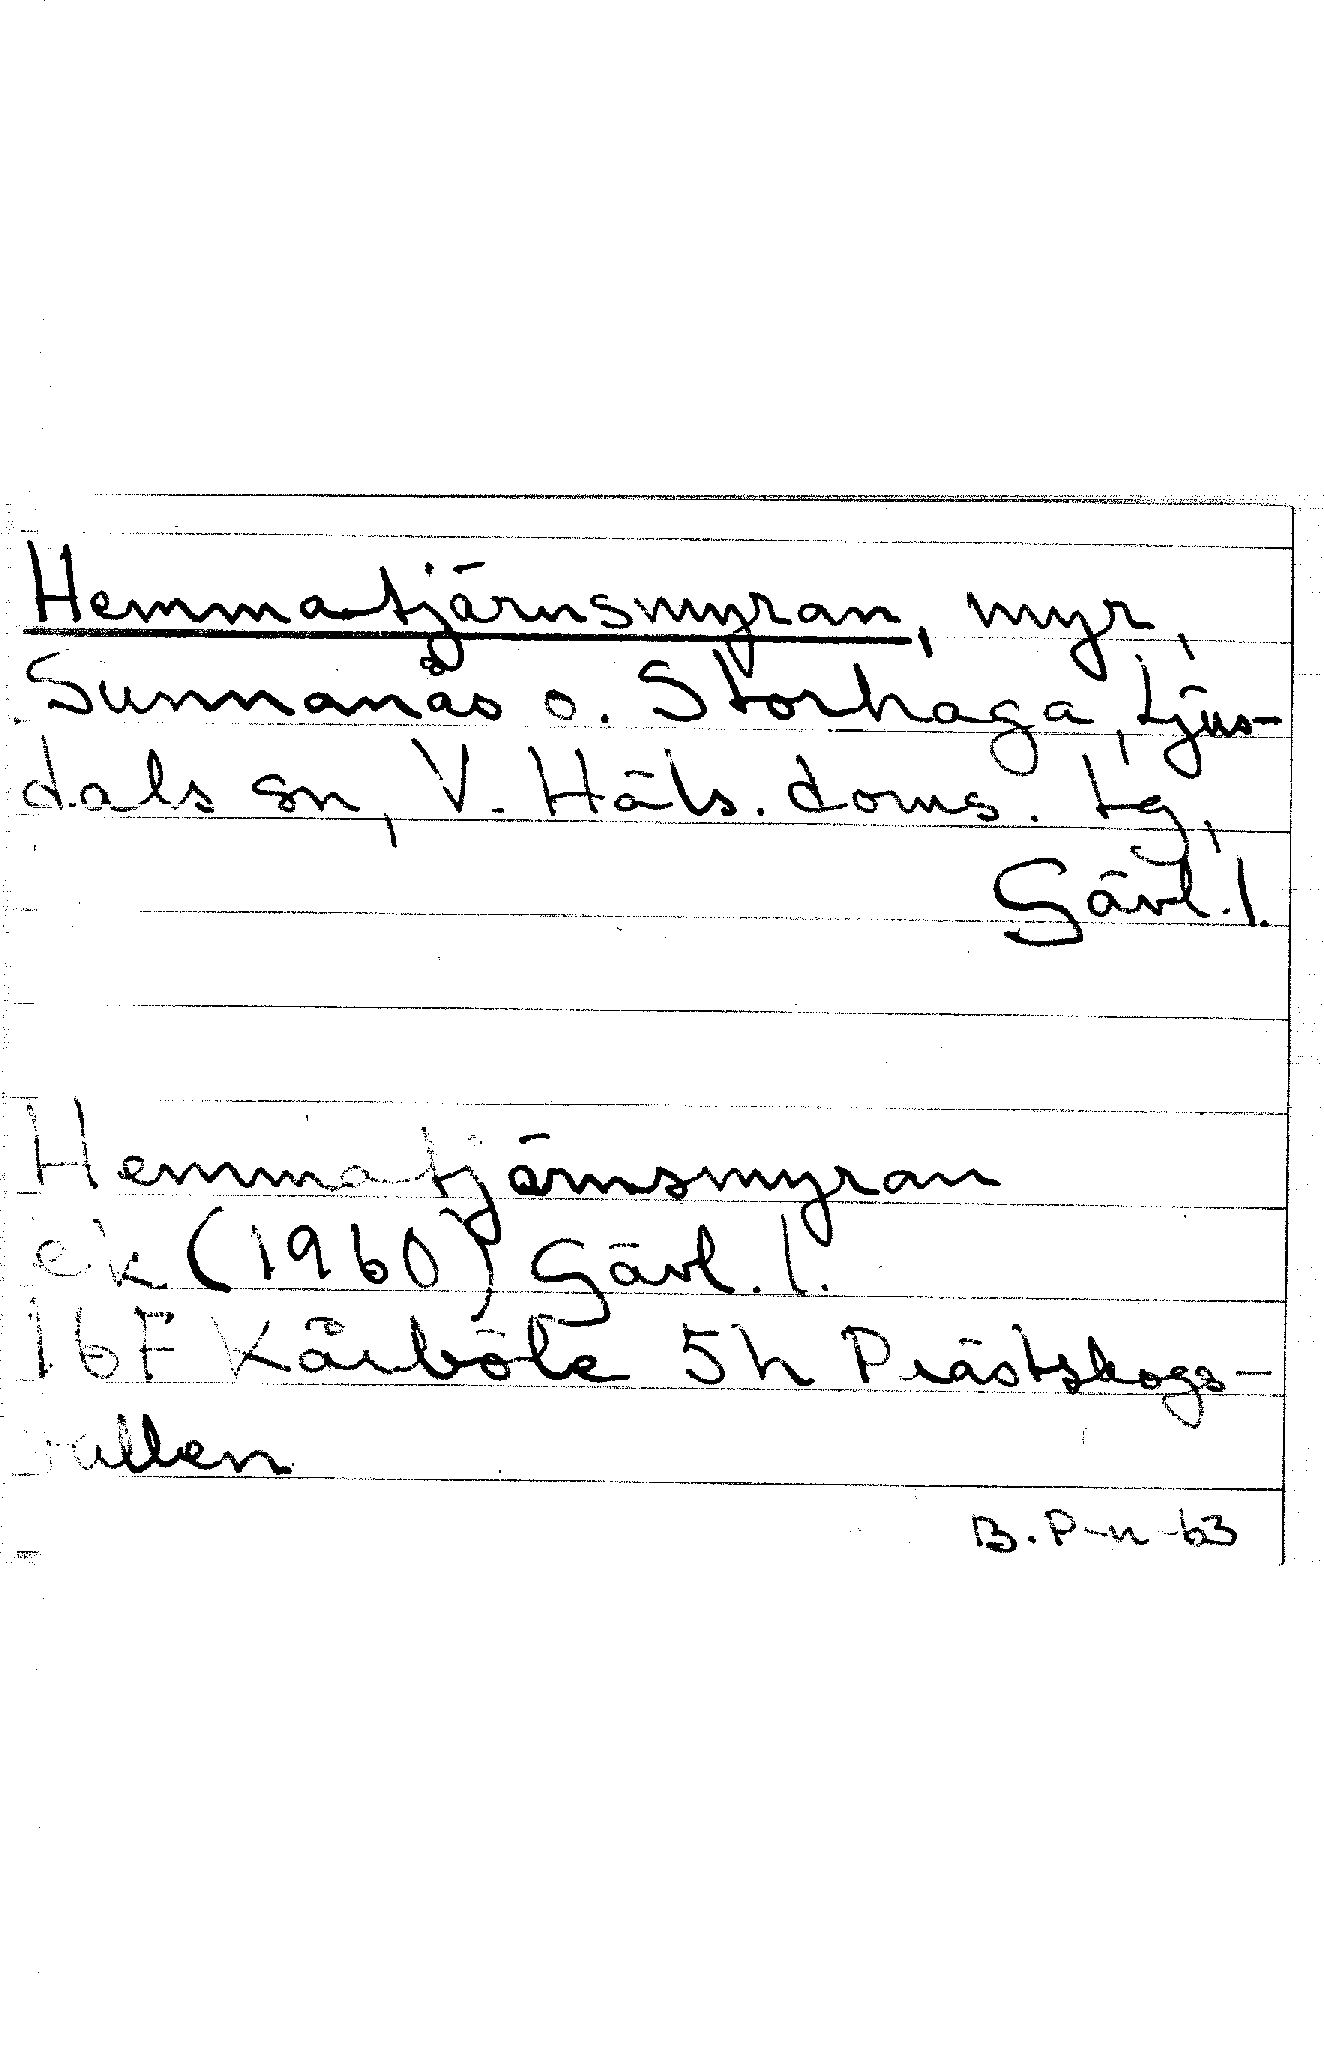 Hemmatjärnsmyran, myr,
Sunnanås o. Storhaga, Ljus-
dals sn, V. Häls. doms. lg,
Gävl. l.
Hemmatjärnsmyran
ek (1960) Gävl. l.
16F Kårböle 5h Prästskogs-
vallen
B. P-n -63